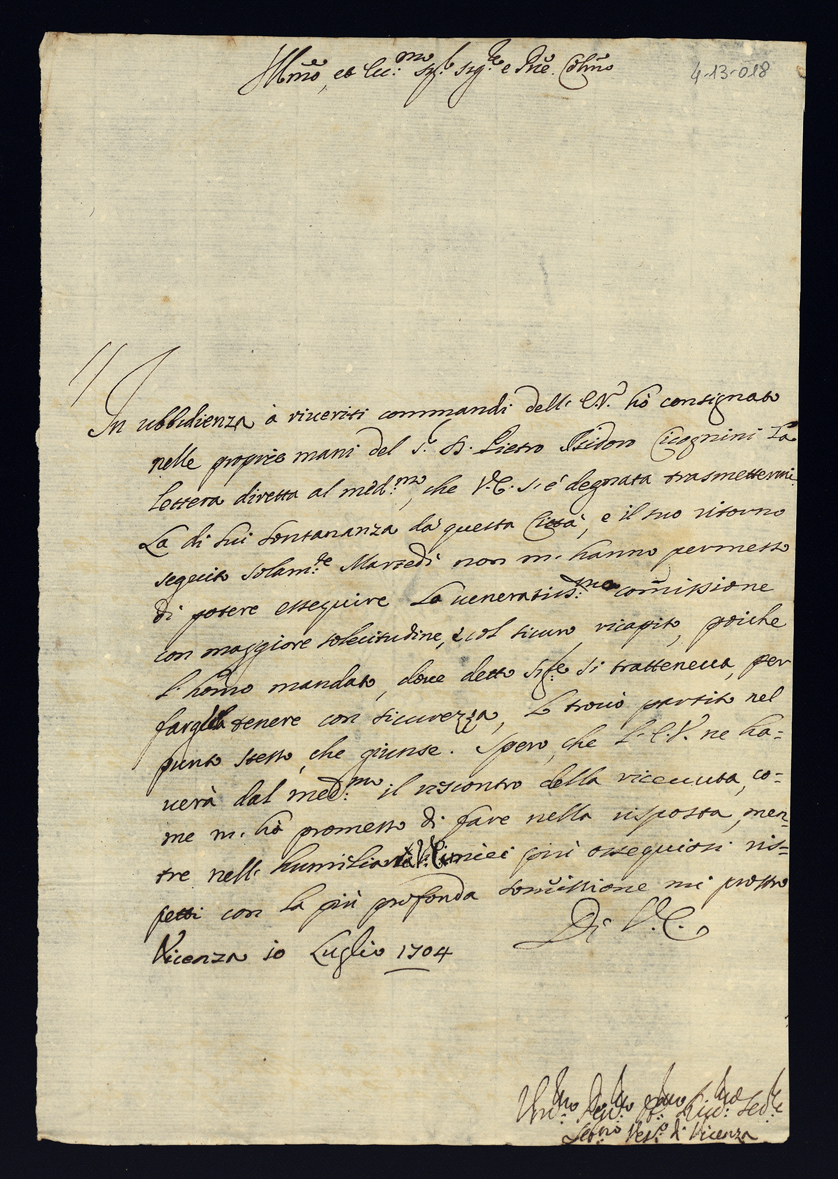 Ill.mo, et Ecc.mo Sig.r Sig.re e Pne. Colmo
4-13-018
In ubbidienza à riveriti commandi dell' E.V. hò consignato
nelle proprie mani del S.r D. Pietro Isidoro Cicognini la
lettera diretta al med.mo, che V.E. s'è degnata trasmettermi.
La di lui lontananza da questa Città, e il suo ritorno
seguito solam.te Martedì non m'hanno permesso
di potere esseguire la veneratiss.ma comissione
con maggiore solecitudine, e col sicuro ricapito, poiche
l'homo mandato, dove detto Sig.re si tratteneva, per
fargliela tenere con sicurezza, lo trovò partito nel
punto stesso, che giunse. Spero, che l'E.V. ne ha=
verà dal med.mo il riscontro della ricevuta, co=
me m'hà promesso di fare nella risposta, men=
tre nell' humiliare à V.E. i miei più ossequiosi ris=
petti con la più profonda somissione mi prostro
Di V.E.
Vicenza 10 Luglio 1704
Vm.mo Deu.mo
Seb.no Ves.o di Vicenza